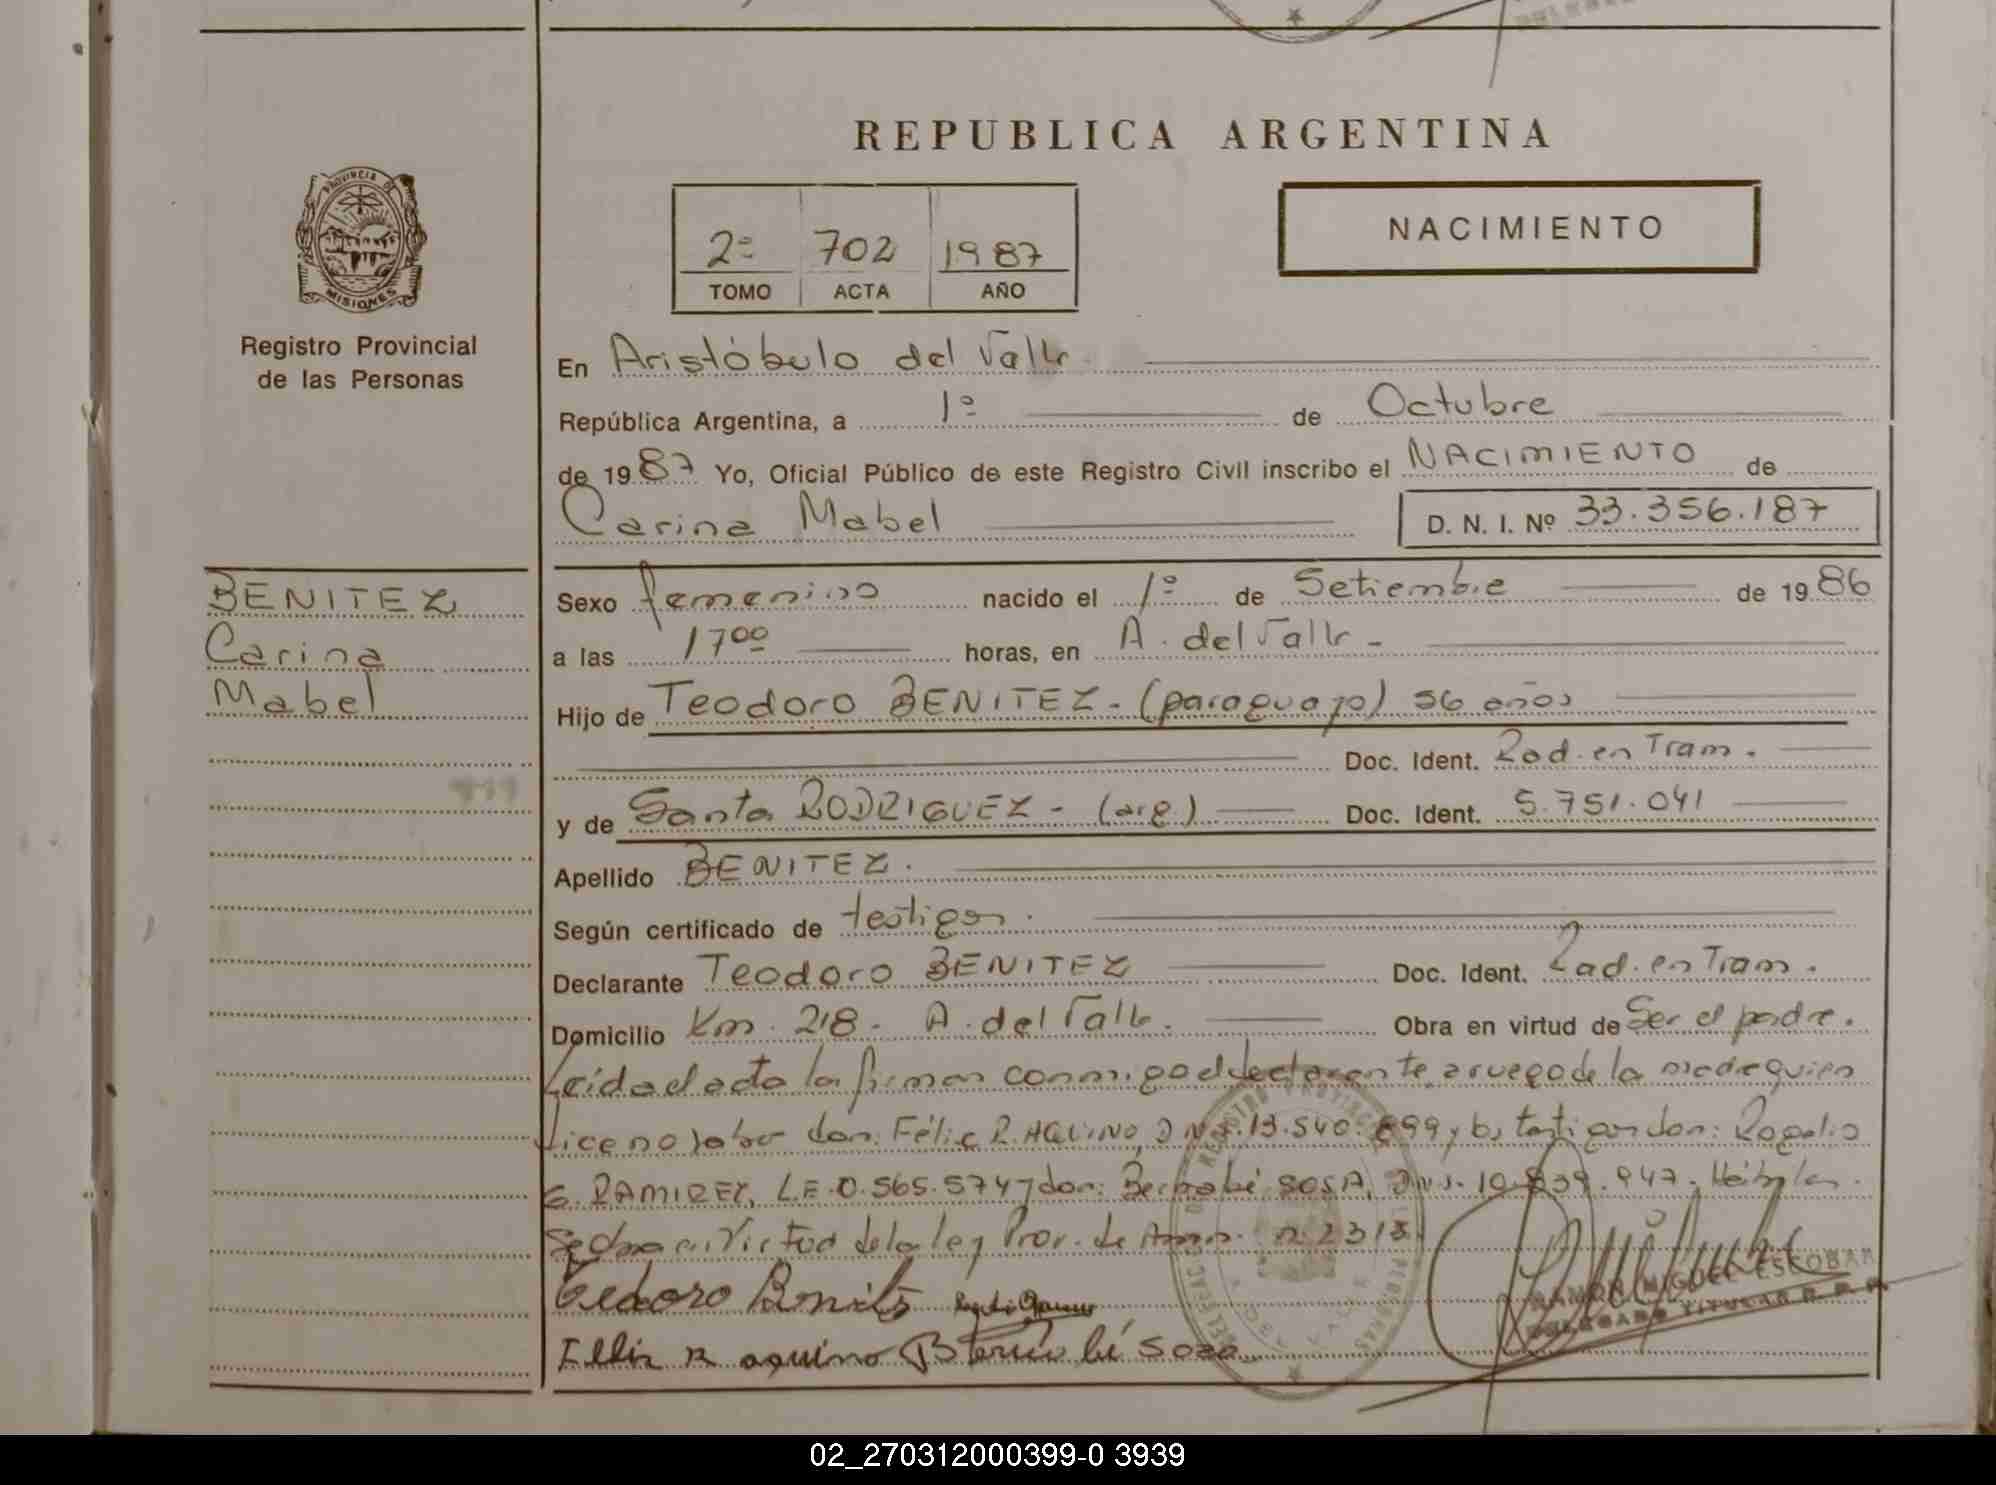 REPUBLICA ARGENTINA
PROVINCIA DE
MISIONES
Registro Provincial
de las Personas
2º 702 1987
TOMO ACTA AÑO
NACIMIENTO
En Aristóbulo del Valle
República Argentina, a 1º de Octubre
de 1987 Yo, Oficial Público de este Registro Civil inscribo el NACIMIENTO de
Carina Mabel D. N. I. Nº 33.356.187
BENITEZ
Carina
Mabel
Sexo femenino nacido el 1º de Setiembre de 1986
a las 17 00 horas, en A. del Valle -
Hijo de Teodoro BENITEZ - (paraguayo) 56 años
Doc. Ident. Rad. en Tram.
y de Santa RODRIGUEZ - (arg) Doc. Ident. 5.751.041
Apellido BENITEZ.
Según certificado de testigos.
Declarante Teodoro BENITEZ Doc. Ident. Rad. en Tram.
Domicilio Km. 218 - A. del Valle. Obra en virtud de Ser el padre.
Leida el acta la firman conmigo el declarante, a ruego de la madre quien
dice no saber don: Félix R. AQUINO, DNI. 13.540.899 y los testigos don: Rogelio
G. RAMIREZ, L.E. 0.565.574 y don: Bernabé SOSA, DNI. 10.839.947.
en Virtud de la ley Prov. de n 2313
Teodoro Benitez
Felix R aquino Bernabé Sosa
RAMON MIGUEL ESCOBAR
DELEGADO TITULAR R. P. P.
02_270312000399-0 3939